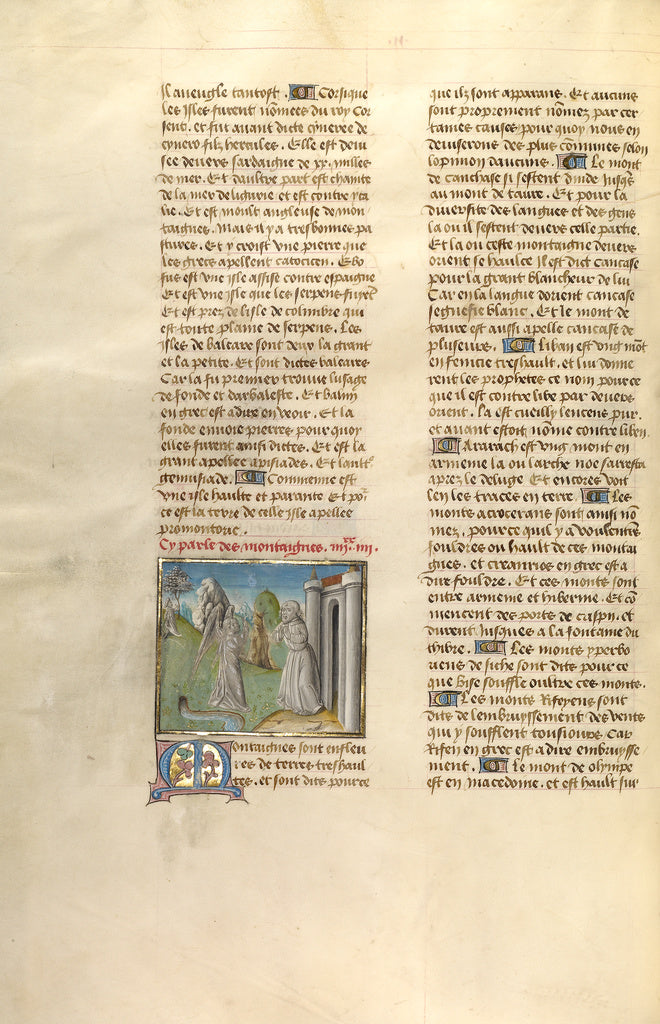 Il aveugle tantost. Corsique
les isles furent nommees du roy Cor
sent. et fut avant dicte cyneree de
cynero filz hercules. Elle est deui
see devers sardaigne de xx. milles
de mer. Et daultre part est chainte
de la mer de ligurie et est contre yta
lie. Et est moult angleuse de mon
taignes. Mais il y a tresbonnes pa
stures. Et y croist une pierre que
les grecs apellent catocicen. Ebo
sus est une isle assise contre espaigne
Et est une isle que les serpens fuyent
Et est prez de lisle de colimbre qui
est toute plaine de serpens. Les
isles de baleare sont deux la grant
et la petite. Et sont dictes baleares
Car la fu premier trouve lusage
de fonde et darbaleste. Et balin
en grec est a dire en
Et la
fonde envoie pierres pour quoy
elles furent ainsi dictes. Et est la
grant apellee
Et lault
gemusiade. Commenie est
une isle haulte et parante Et po
ce est la terre de celle isle apellee
promontore.
Cy parle des montaignes. iiii.xx iiii.
Montaignes sont enfleu
res de terres treshaul
tes. et sont dits pource
que ilz sont apparans. Et aucuns
sont proprement nomez par cer
taines causes pour quoy nous en
deviserons des plus communes selon
lopinion daucuns. Le mont
de cauchase si sestent dinde jusqs
au mont de taure. Et pour la
diversite des langues et des gens
la ou il sestent devers celle partie.
Et la ou ceste montaigne devers
orient se haulce il est dict caucase
pour la grant blancheur de lui
Car en la langue dorient caucase
segnefie blanc. Et le mont de
taure est aussi apelle caucase de
pluseurs. Liban est ung mot
en fenicie treshault. et lui donne
rent les prophetes ce nom pource
que il est contre libe par devers
orient. La est cueilly lencens pur.
et avant estoit nome contre liben
Ararach est ung mont en
armenie la ou larche noe sarresta
aprez le deluge Et encores voit
len les traces en terre. Les
monts acrocerans sont ainsi no
mez. pource quil y a voulentiers
fouldres ou hault de ces montai
gnes. et creaurios en grec est a
dire fouldre. Et ces monts sont
entre armenie et hiberine. Et co
mencent des ports de caspii. et
durent jusques a la fontaine du
thibre. Les monts yperbo
riens de siche sont dits pour ce
que bise souffle oultre ces monts.
Les monts Rifeyens sont
dits de lembruyssement des vents
qui y soufflent tousiours. Car
Rifen en grec est a dire embruysse
ment. Le mont de olympe
est en macedoine. et est hault sur